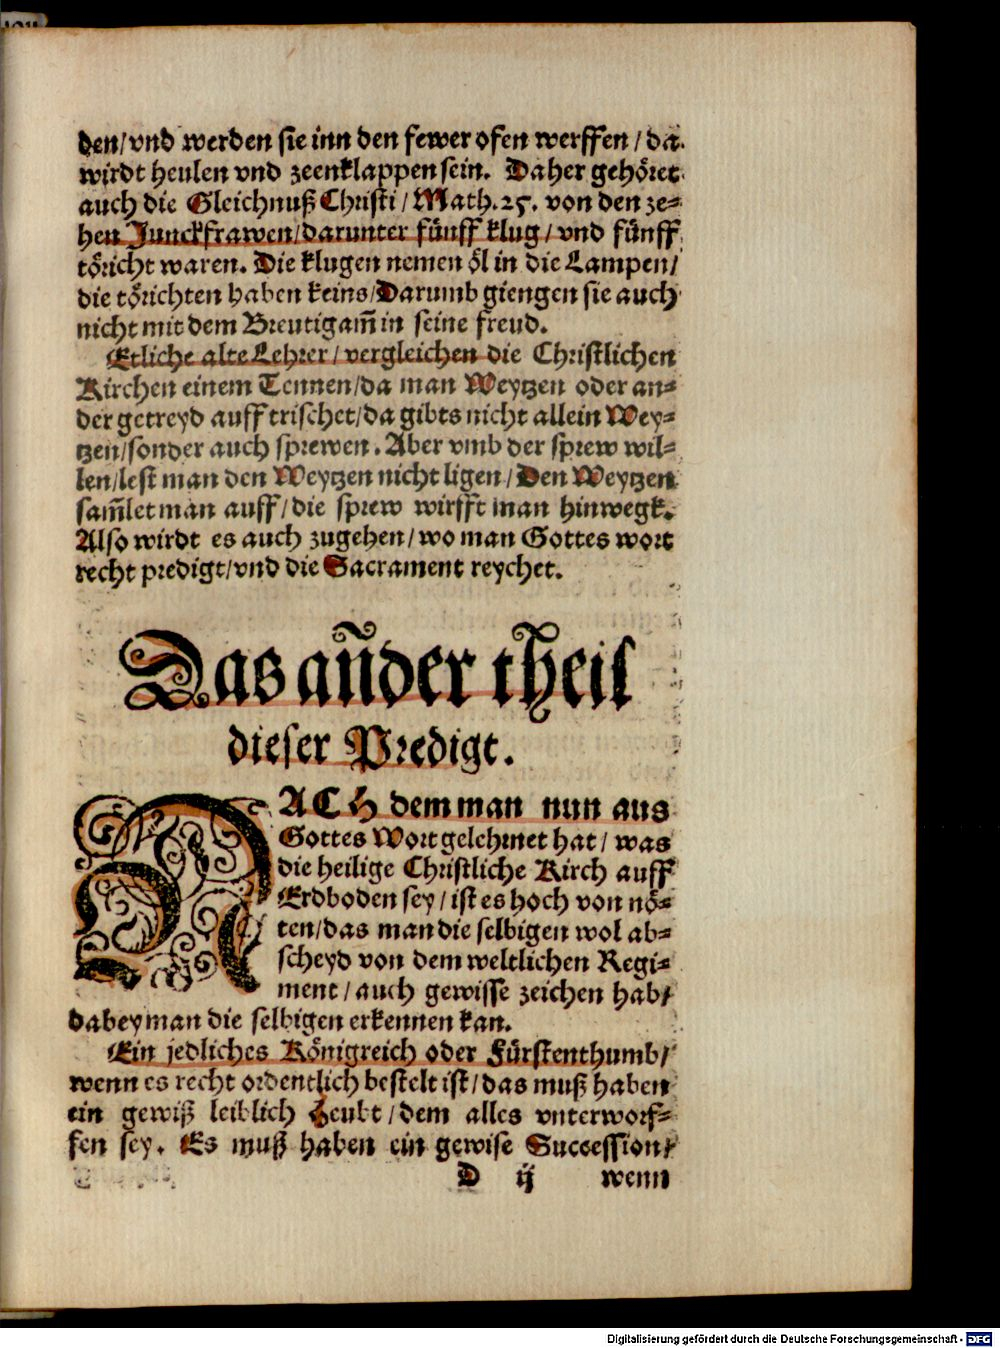 den/vnd werden sie inn den fewer ofen werffen / da
wirdt heulen vnd zeenklappen sein. Daher gehöret
auch die Gleichnuß Christi / Math. 25. von den ze-
hen Junckfrawen/darunter fünff klug / vnd fünff
töricht waren. Die klugen nemen öl in die Lampen/
die törichten haben keins/Darumb giengen sie auch
nicht mit dem Breutigam̃ in seine freud.
Etliche alte Lehrer / vergleichen die Christlichen
Kirchen einem Tennen/da man Weytzen oder an-
der getreyd auff trischet/da gibts nicht allein Wey-
tzen/sonder auch sprewen. Aber vmb der sprew wil-
len/lest man den Weytzen nicht ligen / Den Weytzen
sam̃let man auff / die sprew wirfft man hinwegk.
Also wirdt es auch zugehen / wo man Gottes wort
recht predigt/vnd die Sacrament reychet.
Das añder theil
dieser Predigt.
NACH dem man nun aus
Gottes Wort gelehrnet hat / was
die heilige Christliche Kirch auff
Erdboden sey / ist es hoch von nö-
ten/das man die selbigen wol ab-
scheyd von dem weltlichen Regi-
ment / auch gewisse zeichen hab/
dabey man die selbigen erkennen kan.
Ein jedliches Königreich oder Fürstenthumb/
wenn es recht ordentlich bestelt ist / das muß haben
ein gewiß leiblich Heubt / dem alles vnterworf-
fen sey. Es muß haben ein gewise Succession/
D ij wenn
Digitalisierung gefördert durch die Deutsche Forschungsgemeinschaft - DFG